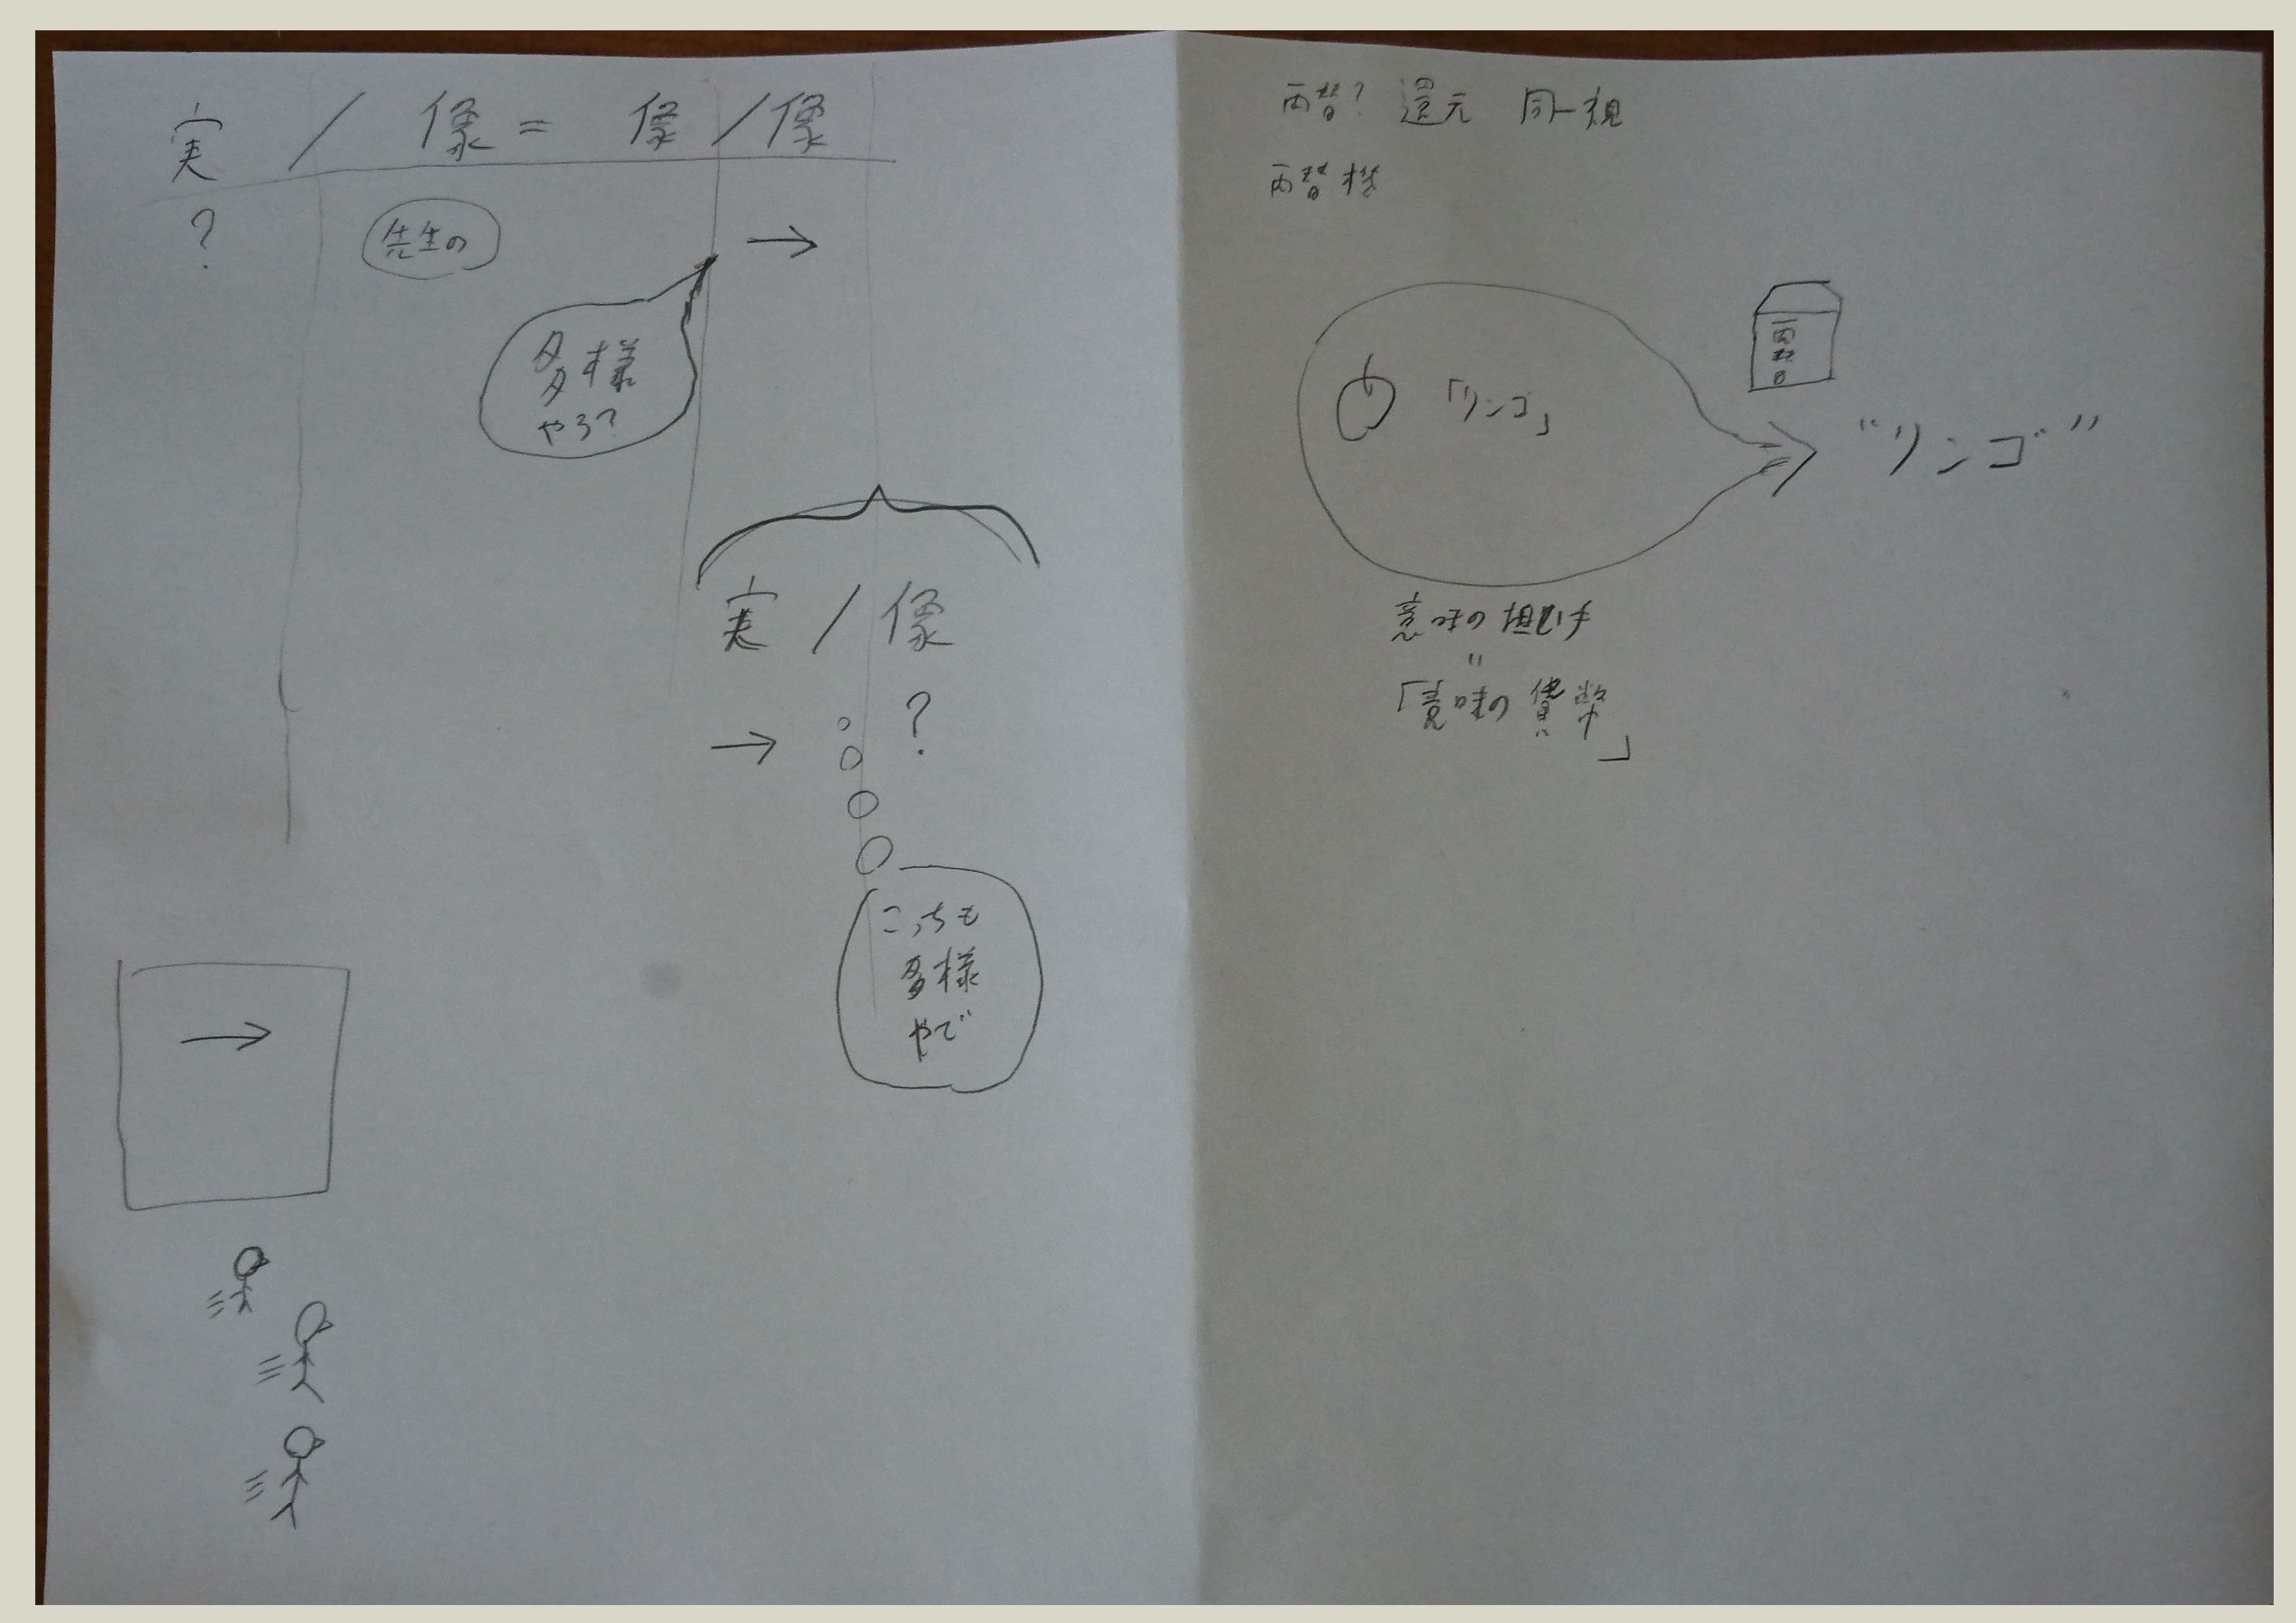 実 / 像 = 像 / 像
?
先生の
→
多様
やろ?
実 / 像
→ ?
こっちも
多様
やで
→
両替? 還元 同一視
両替機
「リンゴ」
両替
“リンゴ”
意味の担い手
"
「意味の貨幣」